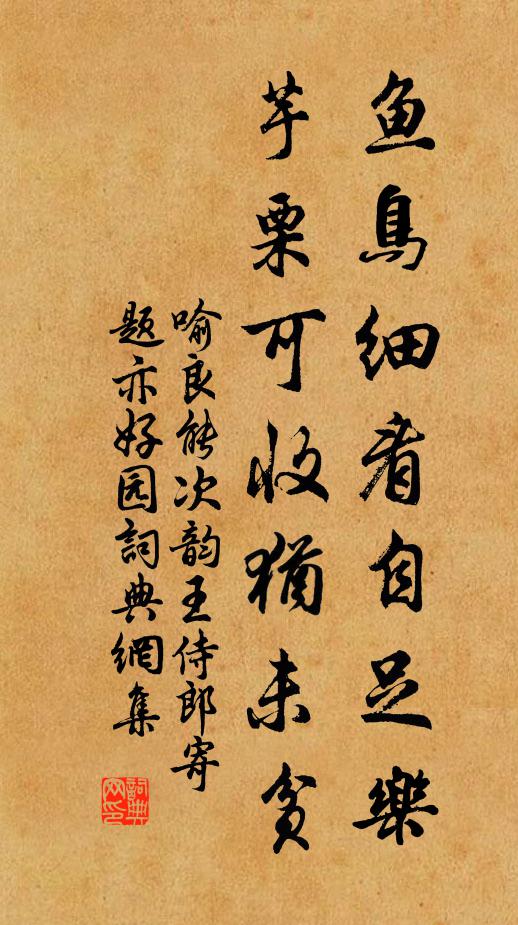 鱼鳥细看自足樂
芋栗可收猶未贫
喻良能次韵王侍郎寄
题亦好园詞典網集
詞典
网印